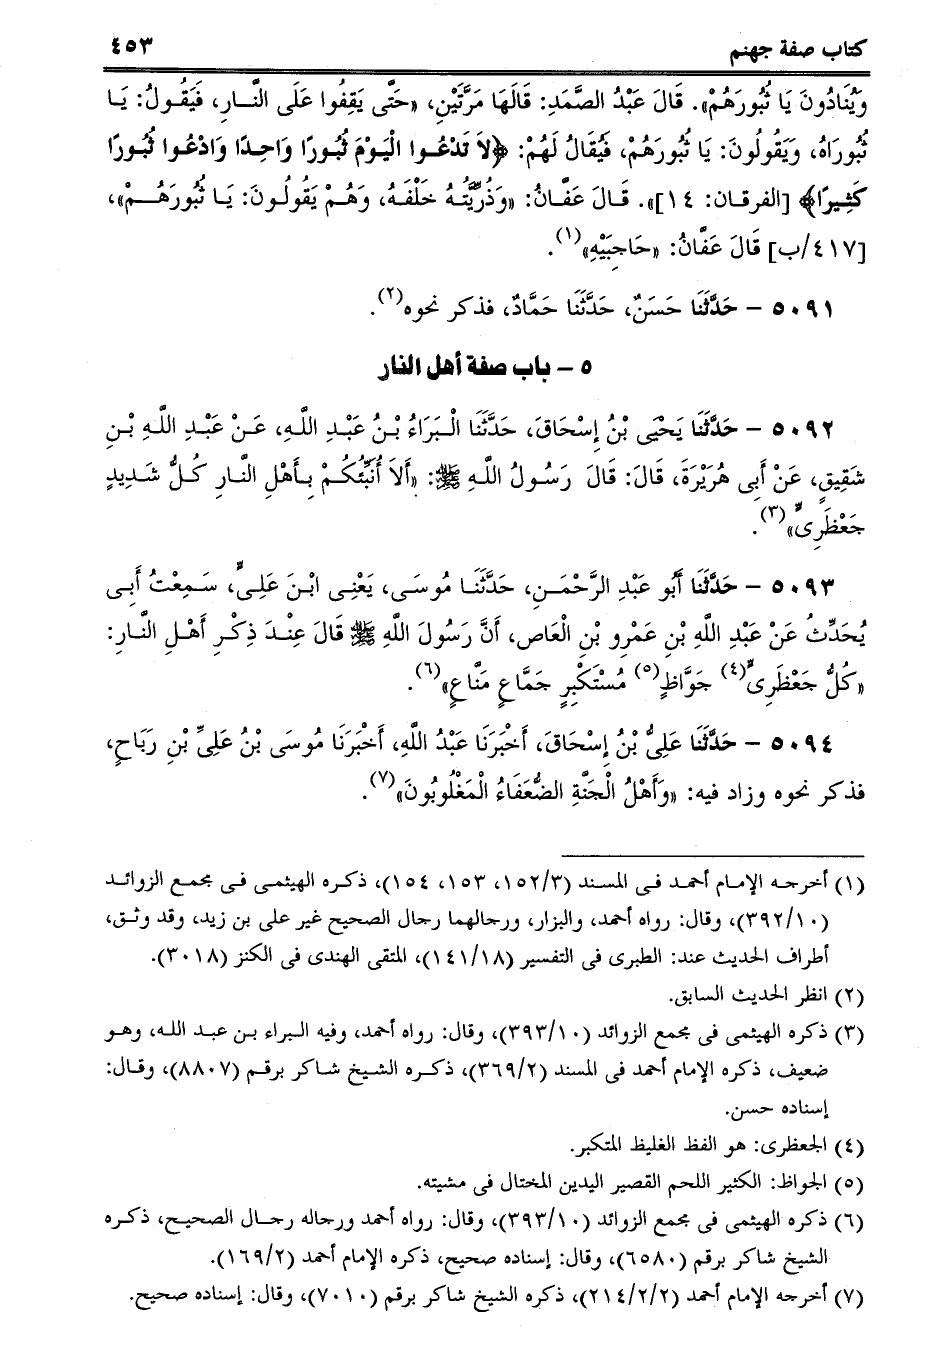 كتاب صفة جهنم
٤٥٣
وَيُنَادُونَ يَا ثُبُورَهُمْ». قَالَ عَبْدُ الصَّمَدِ: قَالَهَا مَرَّتَيْنِ، «حَتَّى يَقِفُوا عَلَى النَّارِ، فَيَقُولُ: يَا
ثُبُورَاهُ، وَيَقُولُونَ: يَا ثُبُورَهُمْ، فَيُقَالُ لَهُمْ: ﴿لاَ تَدْعُوا الْيَوْمَ ثُبُورًا وَاحِدًا وَادْعُوا ثُبُورًا
كَثِيرًا﴾ [الفرقان: ١٤]». قَالَ عَفَّانُ: «وَذُرِّيَّتُهُ خَلْفَهُ، وَهُمْ يَقُولُونَ: يَا ثُبُورَهُمْ»،
[٤١٧/ب] قَالَ عَفَّانُ: «حَاجِبَيْهِ»(١).
٥٠٩١ – حَدَّثَنَا حَسَنٌ، حَدَّثَنَا حَمَّادٌ، فذكر نحوه(٢).
٥ – باب صفة أهل النار
٥٠٩٢ – حَدَّثَنَا يَحْيَى بْنُ إِسْحَاقَ، حَدَّثَنَا الْبَرَاءُ بْنُ عَبْدِ اللَّهِ، عَنْ عَبْدِ اللَّهِ بْنِ
شَقِيقٍ، عَنْ أَبِى هُرَيْرَةَ، قَالَ: قَالَ رَسُولُ اللَّهِ ﷺ: «أَلاَ أُنَبِّئُكُمْ بِأَهْلِ النَّارِ كُلُّ شَدِيدٍ
جَعْظَرِىٍّ»(٣).
٥٠٩٣ – حَدَّثَنَا أَبُو عَبْدِ الرَّحْمَنِ، حَدَّثَنَا مُوسَى، يَعْنِى ابْنَ عَلِىٍّ، سَمِعْتُ أَبِى
يُحَدِّثُ عَنْ عَبْدِ اللَّهِ بْنِ عَمْرِو بْنِ الْعَاصِ، أَنَّ رَسُولَ اللَّهِ ﷺ قَالَ عِنْدَ ذِكْرِ أَهْلِ النَّارِ:
«كُلُّ جَعْظَرِىٍّ(٤) جَوَّاظٍ(٥) مُسْتَكْبِرٍ جَمَّاعٍ مَنَّاعٍ»(٦).
٥٠٩٤ – حَدَّثَنَا عَلِىُّ بْنُ إِسْحَاقَ، أَخْبَرَنَا عَبْدُ اللَّهِ، أَخْبَرَنَا مُوسَى بْنُ عَلِىِّ بْنِ رَبَاحٍ،
فذكر نحوه وزاد فيه: «وَأَهْلُ الْجَنَّةِ الضُّعَفَاءُ الْمَغْلُوبُونَ»(٧).
(١) أخرجه الإمام أحمد فى المسند (١٥٢/٣، ١٥٣، ١٥٤)، ذكره الهيثمى فى مجمع الزوائد
(٣٩٢/١٠)، وقال: رواه أحمد، والبزار، ورجالهما رجال الصحيح غير على بن زيد، وقد وثق،
أطراف الحديث عند: الطبرى فى التفسير (١٤١/١٨)، المتقى الهندى فى الكنز (٣٠١٨).
(٢) انظر الحديث السابق.
(٣) ذكره الهيثمى فى مجمع الزوائد (٣٩٣/١٠)، وقال: رواه أحمد، وفيه البراء بن عبد الله، وهو
ضعيف، ذكره الإمام أحمد فى المسند (٣٦٩/٢)، ذكره الشيخ شاكر برقم (٨٨٠٧)، وقال:
إسناده حسن.
(٤) الجعظرى: هو الفظ الغليظ المتكبر.
(٥) الجواظ: الكثير اللحم القصير اليدين المختال فى مشيته.
(٦) ذكره الهيثمى فى مجمع الزوائد (٣٩٣/١٠)، وقال: رواه أحمد ورجاله رجال الصحيح، ذكره
الشيخ شاكر برقم (٦٥٨٠)، وقال: إسناده صحيح، ذكره الإمام أحمد (١٦٩/٢).
(٧) أخرجه الإمام أحمد (٢١٤/٢/٢)، ذكره الشيخ شاكر برقم (٧٠١٠)، وقال: إسناده صحيح.